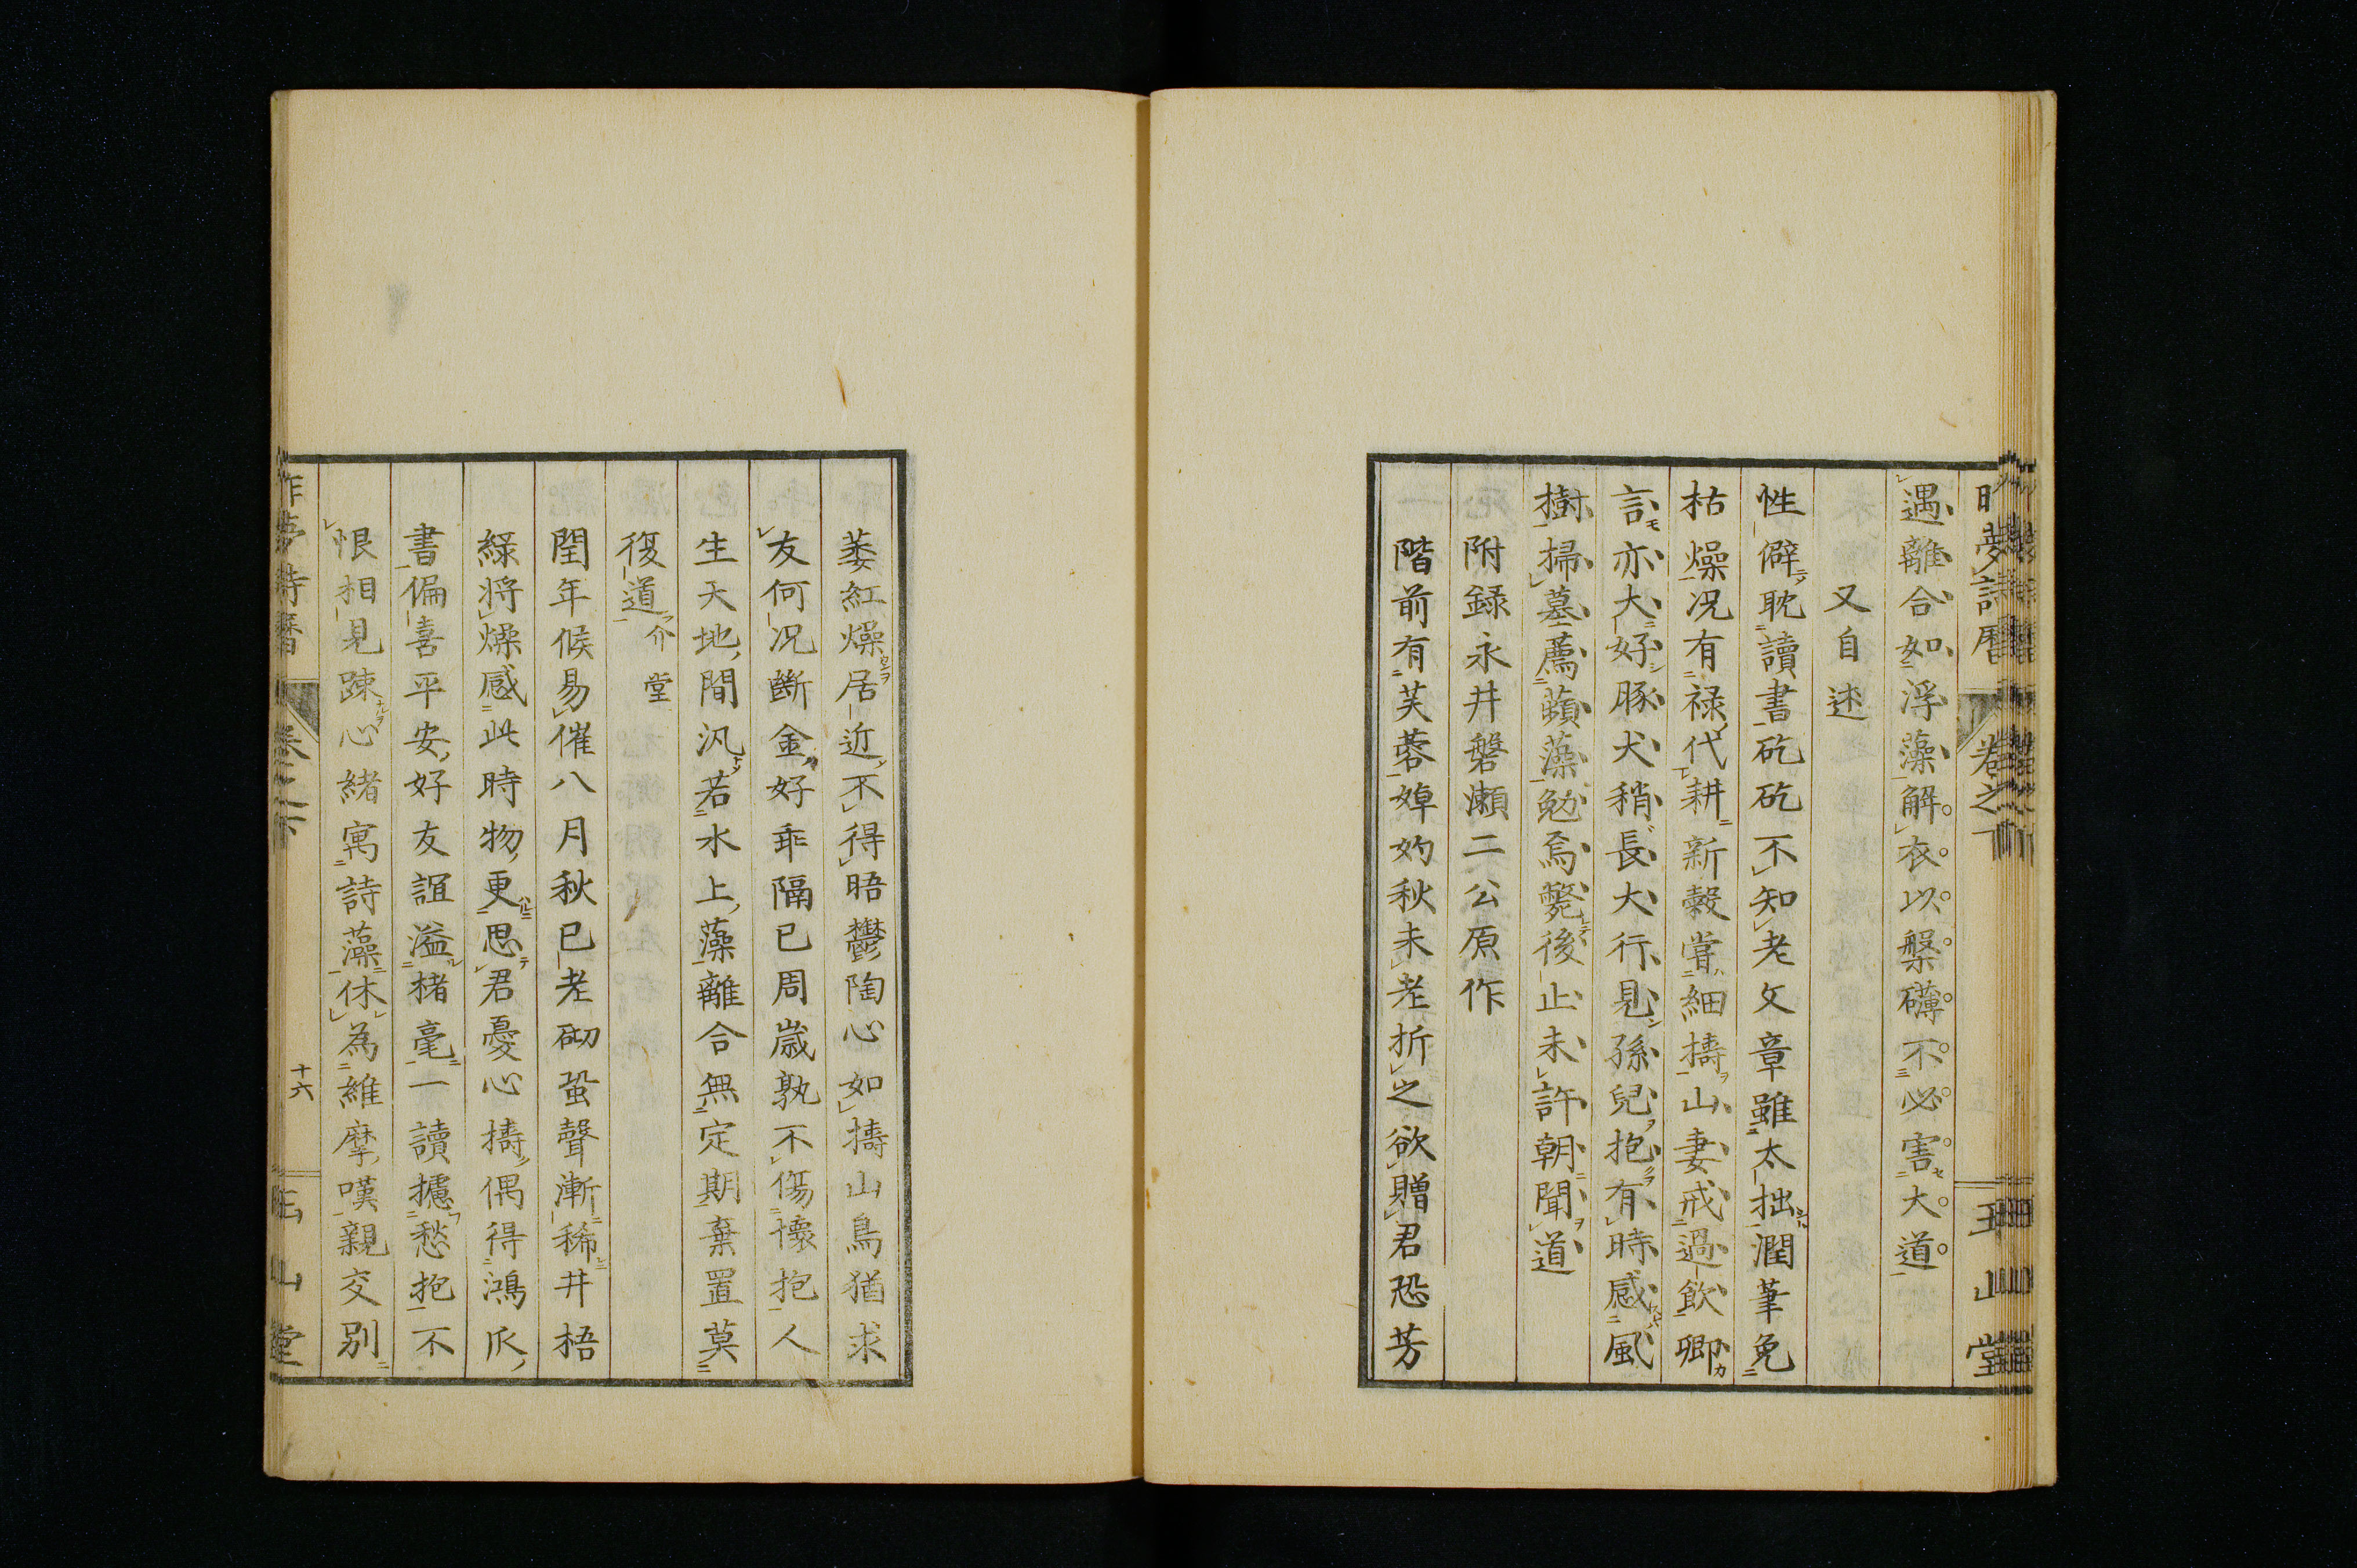 遇離合如浮藻解衣以槃礴不必害大道
又自述
性僻耽讀書矻矻不知老文章雖太拙潤筆免
枯燥况有禄代耕新穀嘗細擣山妻戒過飲卿
言亦大好豚犬稍長大行見孫兒抱有時感風
樹掃墓薦蘋藻勉焉斃後止未許朝聞道
附録永井磐瀬二公原作
階前有芙蓉婥妁秋未老折之欲贈君恐芳
萎紅燥居近不得晤鬱陶心如擣山鳥猶求
友何况斷金好乖隔已周歳孰不傷懐抱人
生天地間汎若水上藻離合無定期棄置莫
復道 介堂
閏年候易催八月秋已老砌蛩聲漸稀井梧
緑將燥感此時物更思君憂心擣偶得鴻爪
書偏喜平安好友誼溢楮毫一讀攄愁抱不
恨相見踈心緒寓詩藻休為維摩嘆親交別
昨夢詩暦 卷之下 十六 玉山堂